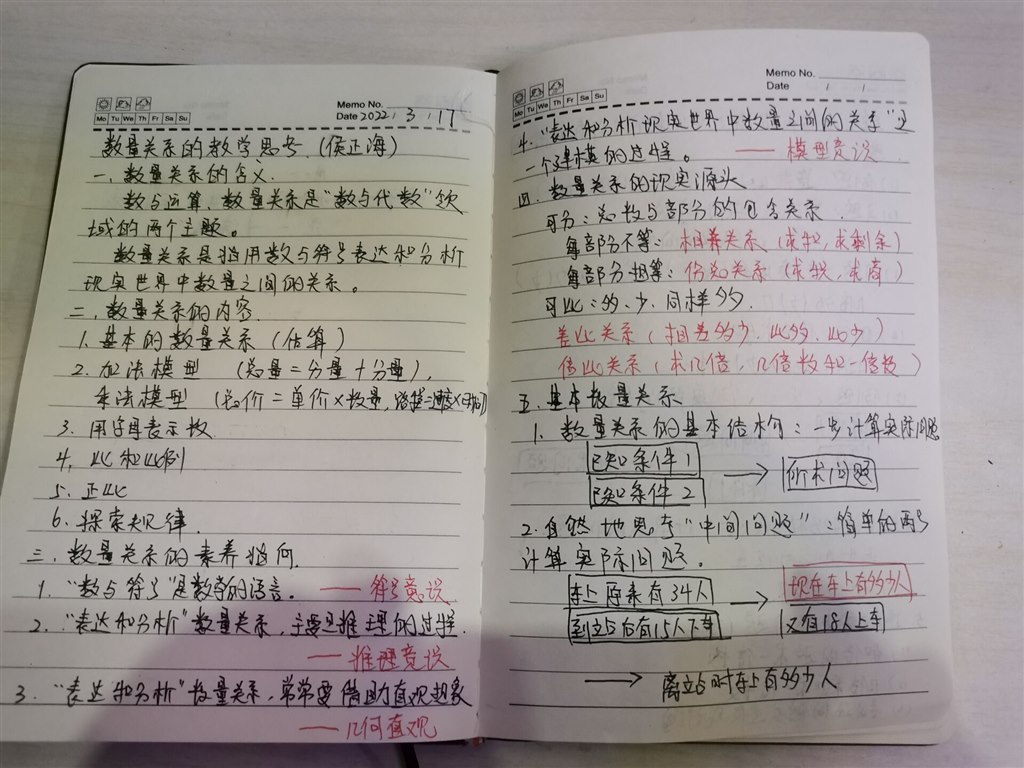 Memo No.
Mo Tu We Th Fr Sa Su
Date 2022 / 3 / 17
数量关系的教学思考（侯正海）
一、数量关系的含义.
数与运算、数量关系是“数与代数”领
域的两个主题。
数量关系是指用数与符号表达和分析
现实世界中数量之间的关系。
二、数量关系的内容.
1. 基本的数量关系（估算）
2. 加法模型 （总量=分量+分量）、
乘法模型 （总价=单价×数量，路程=速度×时间）
3. 用字母表示数
4. 比和比例
5. 正比
6. 探索规律.
三、数量关系的素养指向.
1. “数与符号”是数学的语言。 ——符号意识
2. “表达和分析”数量关系，主要是推理的过程.
——推理意识
3. “表达和分析”数量关系，常常要借助直观想象
——几何直观
Memo No.
Mo Tu We Th Fr Sa Su
Date / /
4. “表达和分析现实世界中数量之间的关系”是
一个建模的过程。 ——模型意识
四、数量关系的现实源头
可分：总数与部分的包含关系.
每部分不等：相并关系（求和，求剩余）
每部分相等：份总关系（求积，求商）
可比：多、少、同样多
差比关系（相差多少、比多、比少）
倍比关系（求几倍，几倍数和一倍数）
五、基本数量关系
1. 数量关系的基本结构：一步计算实际问题
已知条件1
已知条件2
所求问题
2. 自然地思考“中间问题”：简单的两步
计算实际问题。
车上原来有34人
现在车上有多少人
到站后有15人下车
又有18人上车
离站时车上有多少人